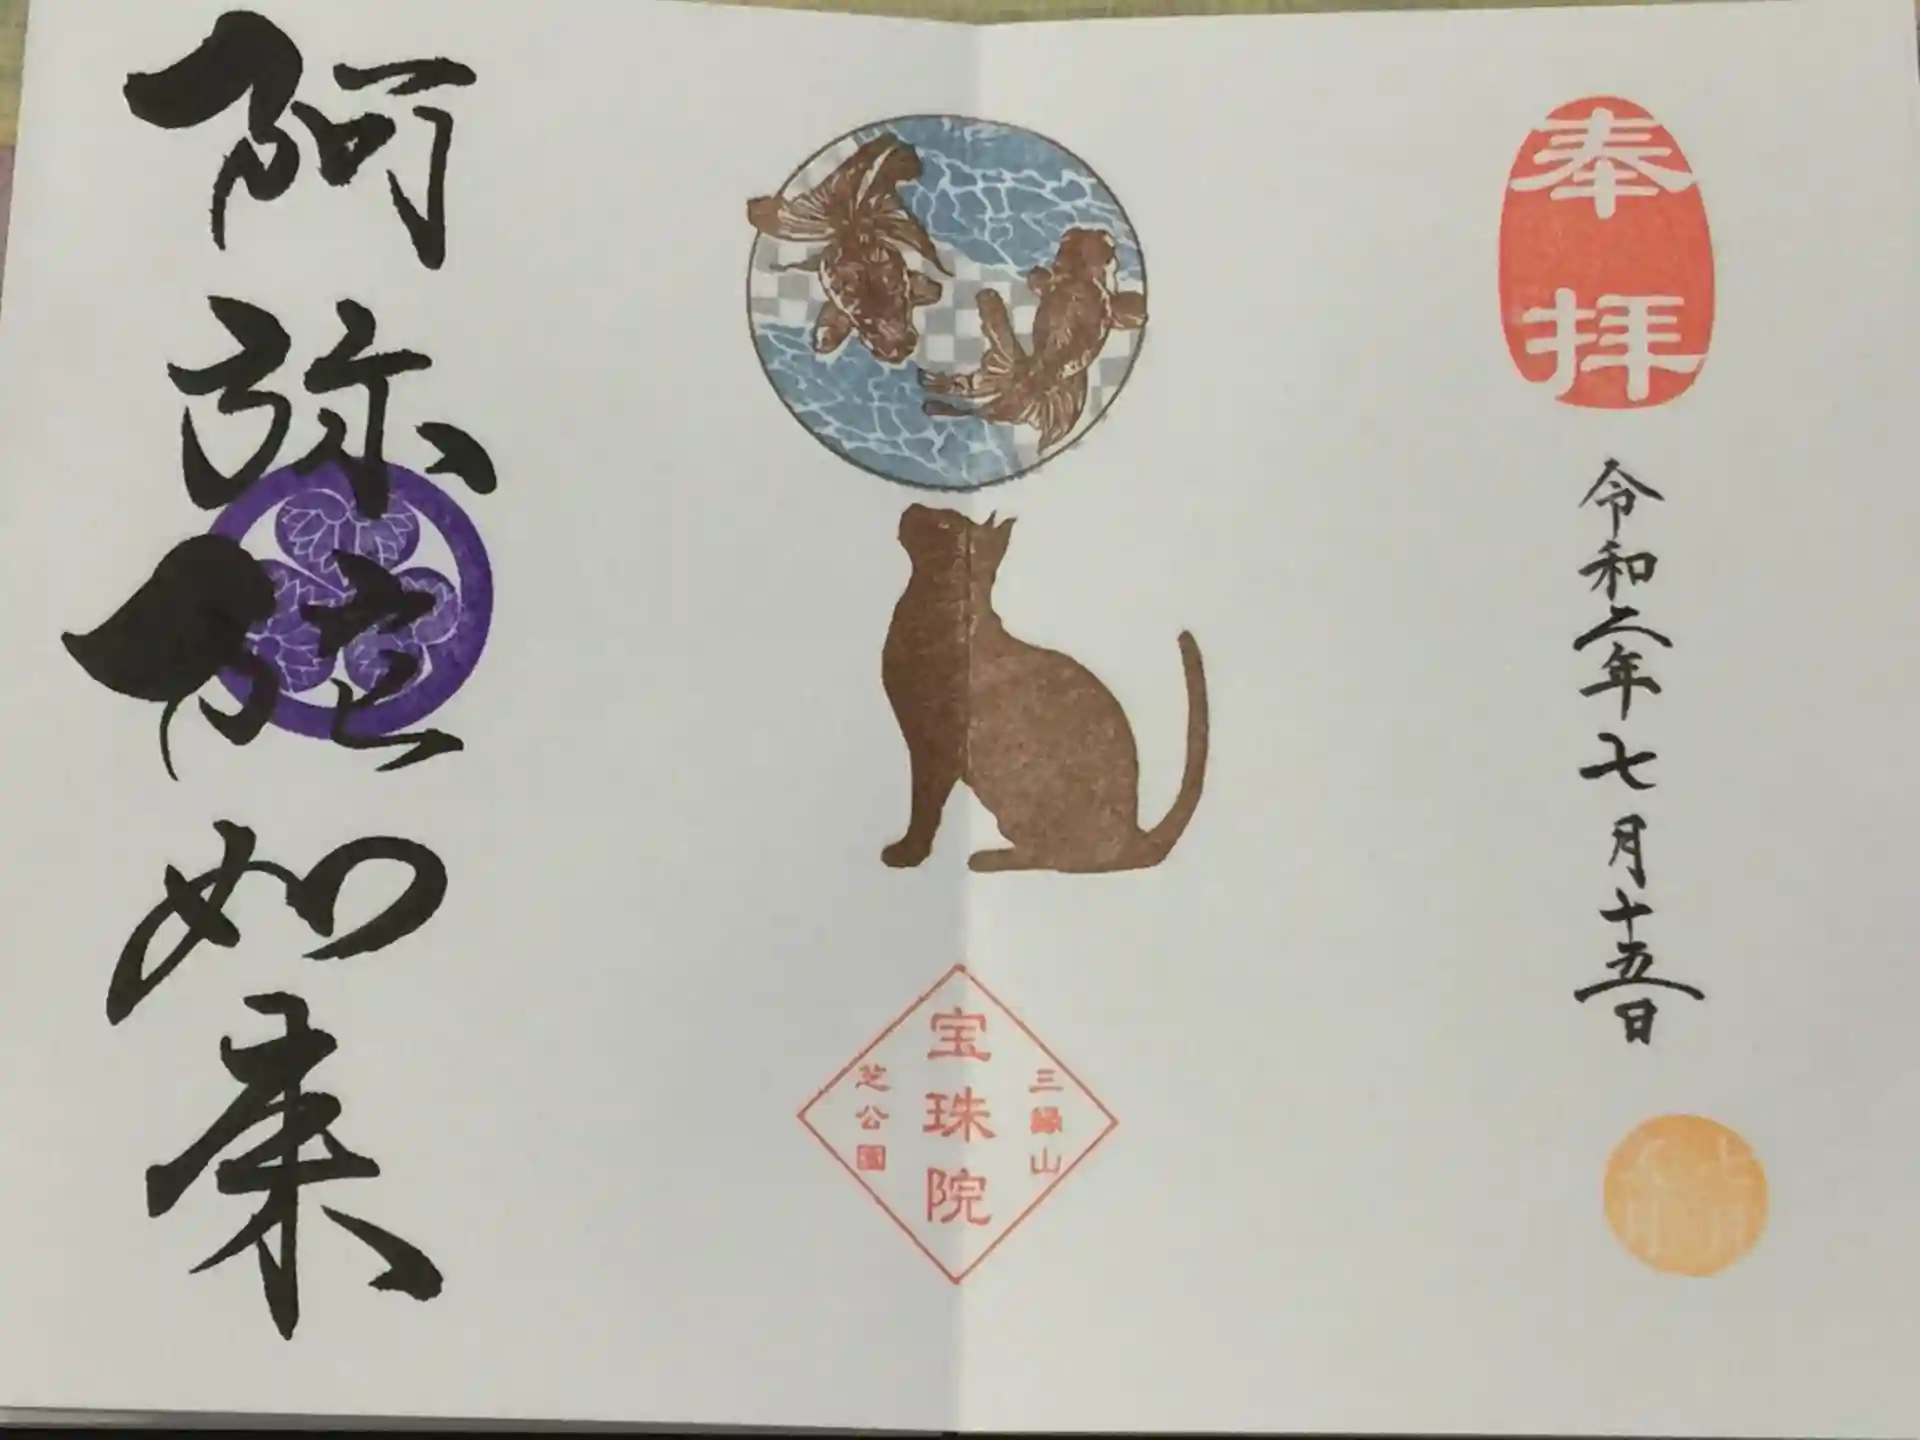 奉拝
令和二年七月十五日
三縁山
宝珠院
芝公園
阿弥陀如来